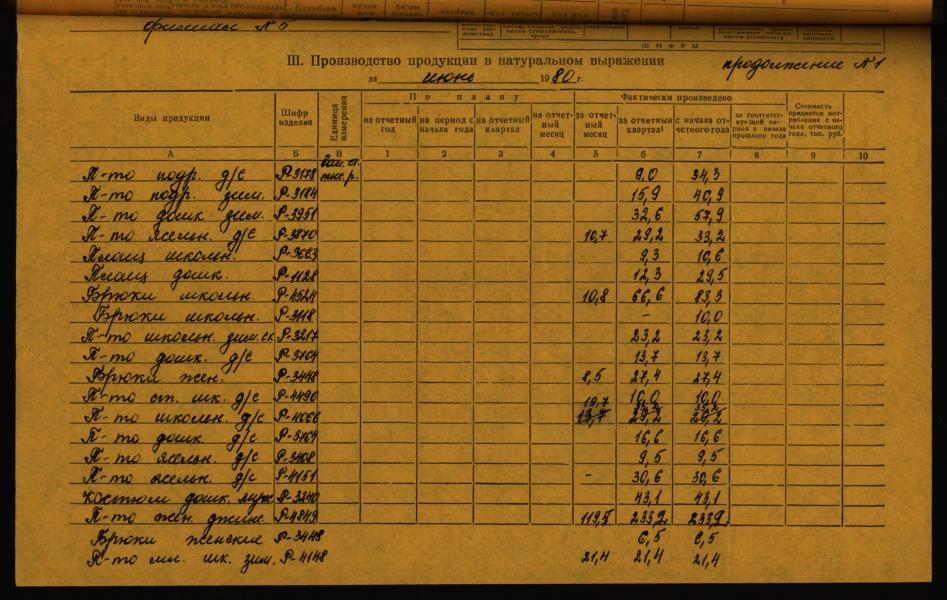 филиал № 5
ШИФРЫ
III. Производство продукции в натуральном выражении продолжение № 1
за июнь 1980 г.
Виды продукции Шифр изделия Единица измерения По плану Фактически произведено
на отчетный год на период с начала года на отчетный квартал на отчетный месяц за отчетный месяц за отчетный квартал с начала отчетного года за соответствующий период с начала прошлого года Стоимость предметов потребления с начала отчетного года, тыс. руб.
А Б В 1 2 3 4 5 6 7 8 9 10
П-то подр. д/с Р-3178 тыс. р. 9,0 34,3
П-то подр. зим. Р-3184 15,9 40,9
П-то дошк. зим. Р-3951 32,6 57,9
П-то ясельн. д/с Р-3870 10,7 29,2 33,2
Плащ школьн. Р-3663 9,3 10,6
Плащ дошк. Р-1128 12,3 29,5
Брюки школьн. Р-4524 10,8 66,6 83,3
Брюки школьн. Р-3118 - 10,0
П-то школьн. зим. ск. Р-3217 23,2 23,2
П-то дошк. д/с Р-3764 13,7 13,7
Брюки жен. Р-3448 8,5 27,4 27,4
П-то ст. шк. д/с Р-4496 10,0 10,0
П-то школьн. д/с 19,7
П-то дошк. д/с 16,6 16,6
П-то ясельн. д/с 9,5 9,5
П-то ясельн. д/с Р-4151 - 30,6 30,6
Костюм дошк. Р-3240 43,1 43,1
П-то жен. джинс. Р-4849 119,5 233,9 233,9
Брюки женские Р-3448 6,5 6,5
П-то мл. шк. зим. Р-4148 21,4 21,4 21,4